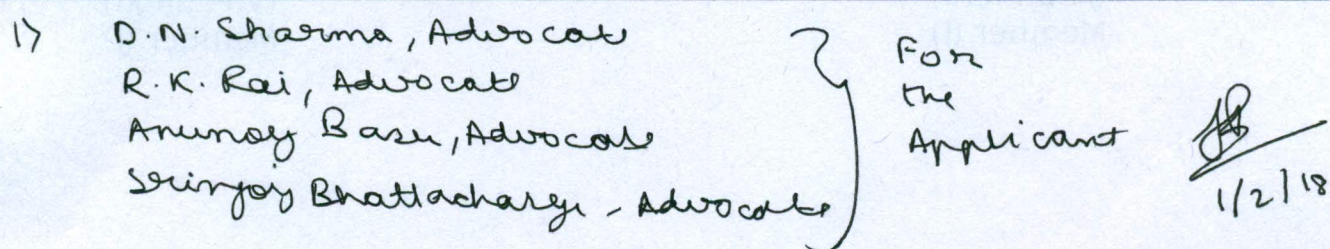 1> D.N. Sharma, Advocate
R.K. Rai, Advocate
Arunoy Basu, Advocate
Srinjoy Bhattacharye - Advocate
For
the
Applicant
1/2/18